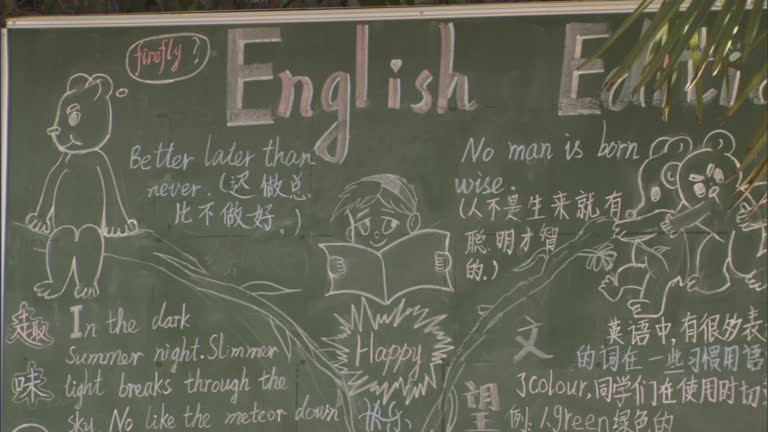 firefly?
English Editi
Better later than
never. (迟做总
比不做好。)
No man is born
wise.
(人不是生来就有
聪明才智
的。)
趣
味
In the dark
Summer night. Slimmer
light breaks through the
sky. No like the meteor down
Happy
文
英语中,有很多表
的词在一些习惯用语
3colour,同学们在使用时切
例:人green绿色的